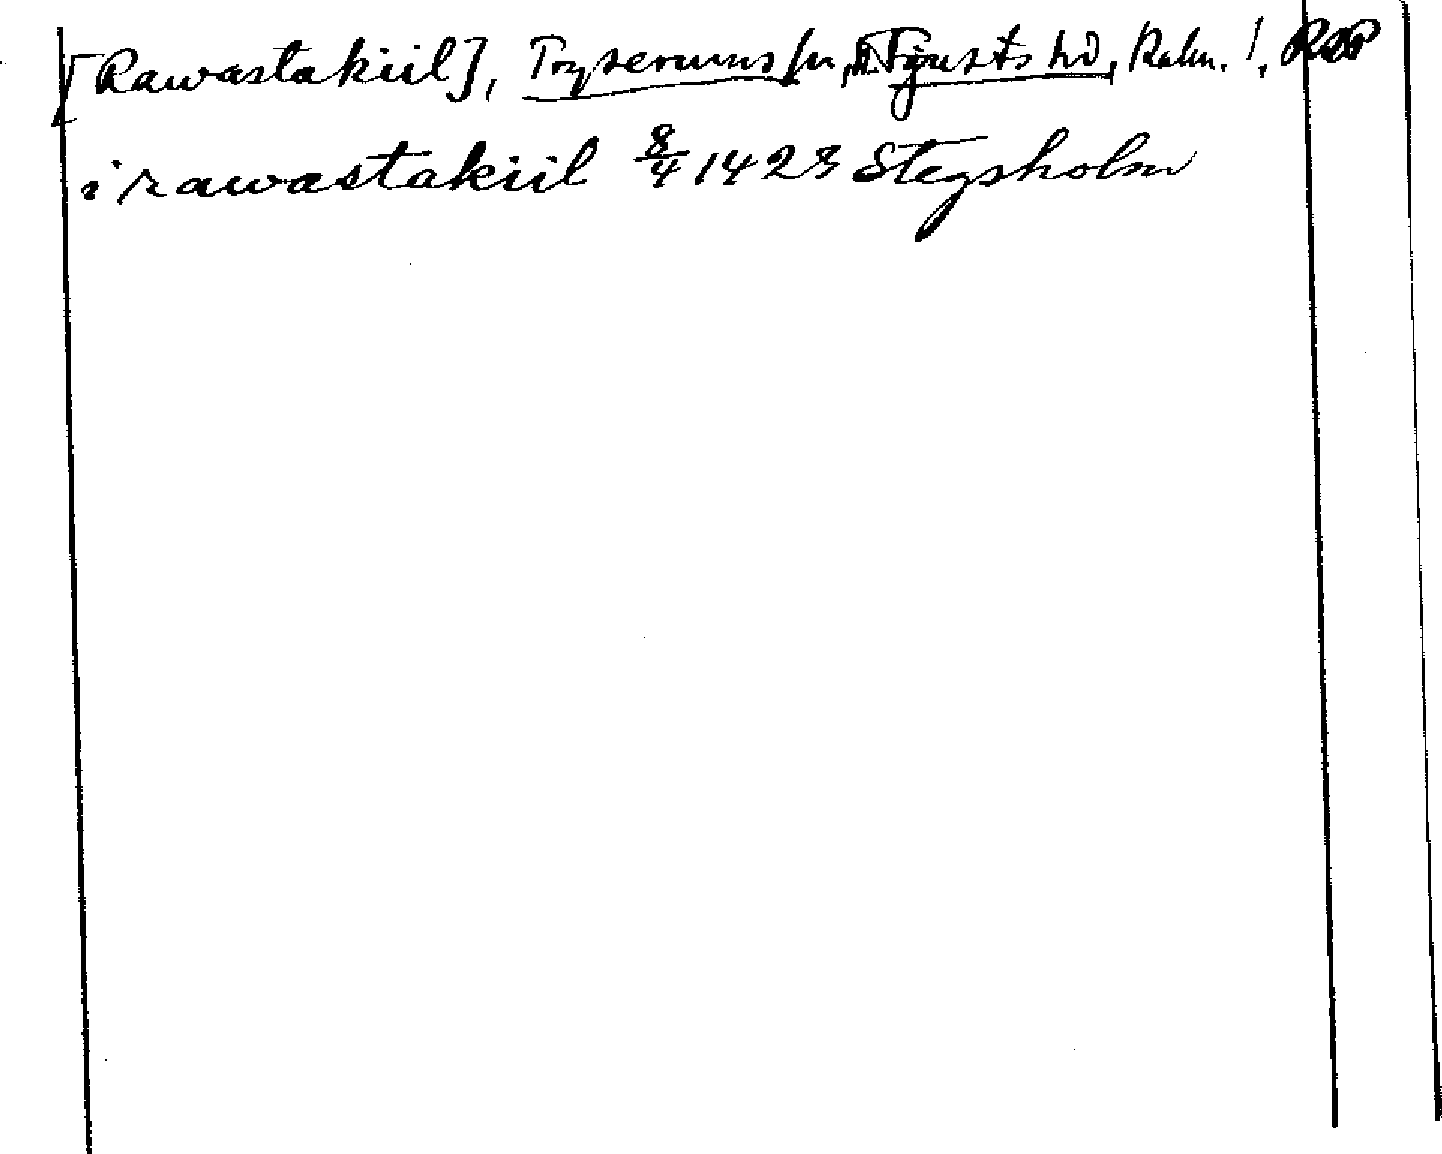 [Rawastakiil], Tryserums sn, N. Tjusts hd, Kalm. l., RAP
i rawastakiil 8/4 1423 Stegsholm